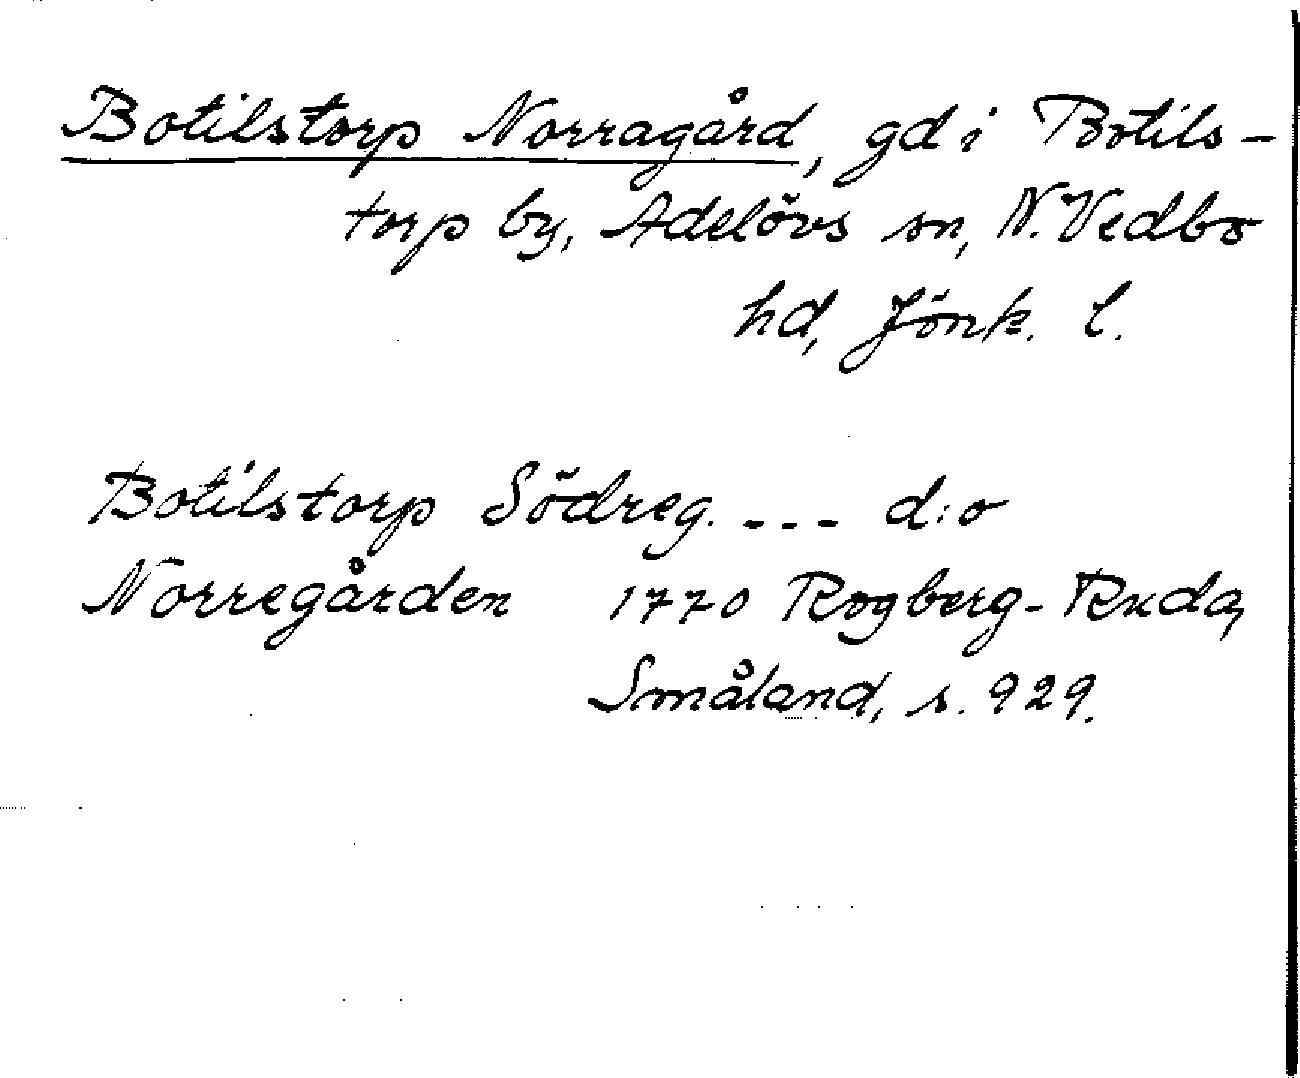 Botilstorp Norragård, gd i Botils-
torp by, Adelövs sn, N. Vedbo
hd, Jönk. l.
Botilstorp Södreg. --- d:o
Norregården 1770 Rogberg-Ruda,
Småland, s. 929.